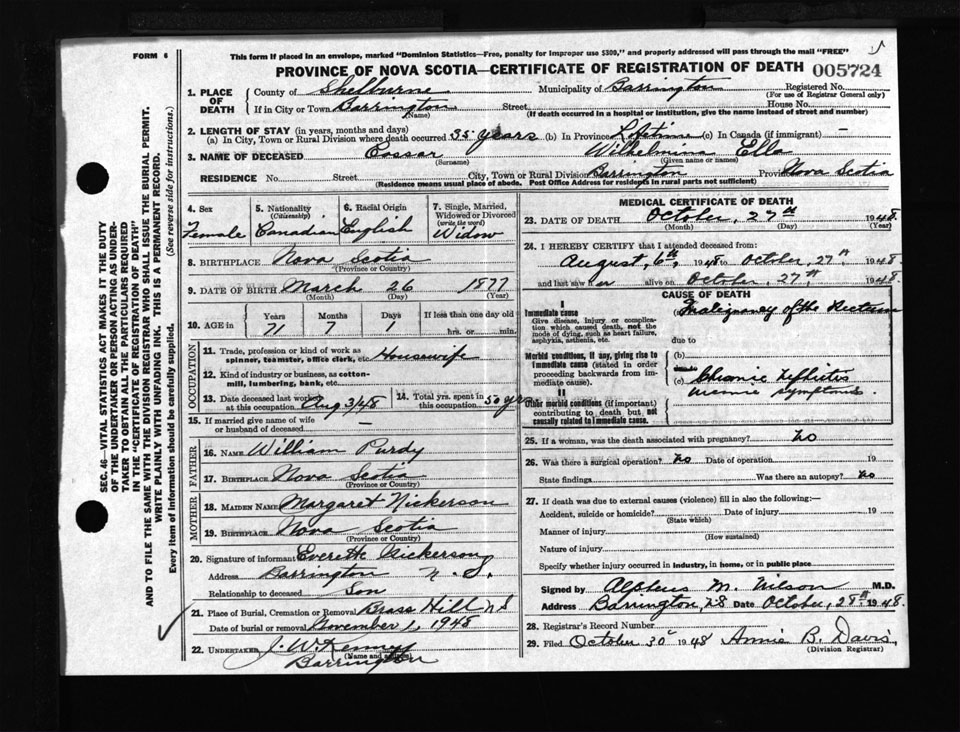 FORM 6
This form if placed in an envelope, marked "Dominion Statistics—Free, penalty for improper use $300," and properly addressed will pass through the mail "FREE"
PROVINCE OF NOVA SCOTIA—CERTIFICATE OF REGISTRATION OF DEATH 005724
SEC. 46—VITAL STATISTICS ACT MAKES IT THE DUTY OF THE UNDERTAKER OR PERSON ACTING AS UNDERTAKER TO OBTAIN ALL THE PARTICULARS REQUIRED IN THE "CERTIFICATE OF REGISTRATION OF DEATH"
AND TO FILE THE SAME WITH THE DIVISION REGISTRAR WHO SHALL ISSUE THE BURIAL PERMIT.
WRITE PLAINLY WITH UNFADING INK. THIS IS A PERMANENT RECORD.
Every item of information should be carefully supplied. (See reverse side for instructions.)
1. PLACE OF DEATH County of Shelburne Municipality of Barrington Registered No.
(For use of Registrar General only)
If in City or Town Barrington Street House No.
(Name) (If death occurred in a hospital or institution, give the name instead of street and number)
2. LENGTH OF STAY (in years, months and days)
(a) In City, Town or Rural Division where death occurred 35 years (b) In Province Lifetime (c) In Canada (if immigrant) —
3. NAME OF DECEASED Wilhelmina Ella
(Surname) (Given name or names)
RESIDENCE No. Street City, Town or Rural Division Barrington Province Nova Scotia
(Residence means usual place of abode. Post Office Address for residents in rural parts not sufficient)
4. Sex Female
5. Nationality (Citizenship) Canadian
6. Racial Origin English
7. Single, Married, Widowed or Divorced (write the word) Widow
8. BIRTHPLACE Nova Scotia
(Province or Country)
9. DATE OF BIRTH March 26 1877
(Month) (Day) (Year)
10. AGE in Years 71 Months 7 Days 1 If less than one day old hrs. or min.
OCCUPATION
11. Trade, profession or kind of work as spinner, teamster, office clerk, etc. Housewife
12. Kind of industry or business, as cotton-mill, lumbering, bank, etc.
13. Date deceased last worked at this occupation Aug 3/48 14. Total yrs. spent in this occupation 50 yrs
15. If married give name of wife or husband of deceased —
FATHER
16. NAME William Purdy
17. BIRTHPLACE Nova Scotia
(Province or Country)
MOTHER
18. MAIDEN NAME Margaret Nickerson
19. BIRTHPLACE Nova Scotia
(Province or Country)
20. Signature of informant Everett Nickerson
Address Barrington N. S.
Relationship to deceased Son
21. Place of Burial, Cremation or Removal Brass Hill NS
Date of burial or removal November 1, 1948
22. UNDERTAKER J. W. Kenney
(Name and address)
Barrington
MEDICAL CERTIFICATE OF DEATH
23. DATE OF DEATH October, 27th 1948
(Month) (Day) (Year)
24. I HEREBY CERTIFY that I attended deceased from:
August, 6th, 1948 to October, 27th, 1948.
and last saw her alive on October, 27th, 1948.
CAUSE OF DEATH
I
Immediate cause
Give disease, injury or complication which caused death, not the mode of dying, such as heart failure, asphyxia, asthenia, etc.
Malignancy of the Rectum
due to
Morbid conditions, if any, giving rise to immediate cause (stated in order proceeding backwards from immediate cause).
(b)
(c) Chronic Nephritis
uremic symptoms.
II
Other morbid conditions (if important) contributing to death but not causally related to immediate cause.
25. If a woman, was the death associated with pregnancy? No
26. Was there a surgical operation? No Date of operation 19
State findings Was there an autopsy? No
27. If death was due to external causes (violence) fill in also the following:—
Accident, suicide or homicide? Date of injury 19
(State which)
Manner of injury
(How sustained)
Nature of injury
Specify whether injury occurred in industry, in home, or in public place
Signed by Alpheus M. Wilson M.D.
Address Barrington, NS Date October, 28th 1948.
28. Registrar's Record Number
29. Filed October 30 1948 Annie B. Davis,
(Division Registrar)